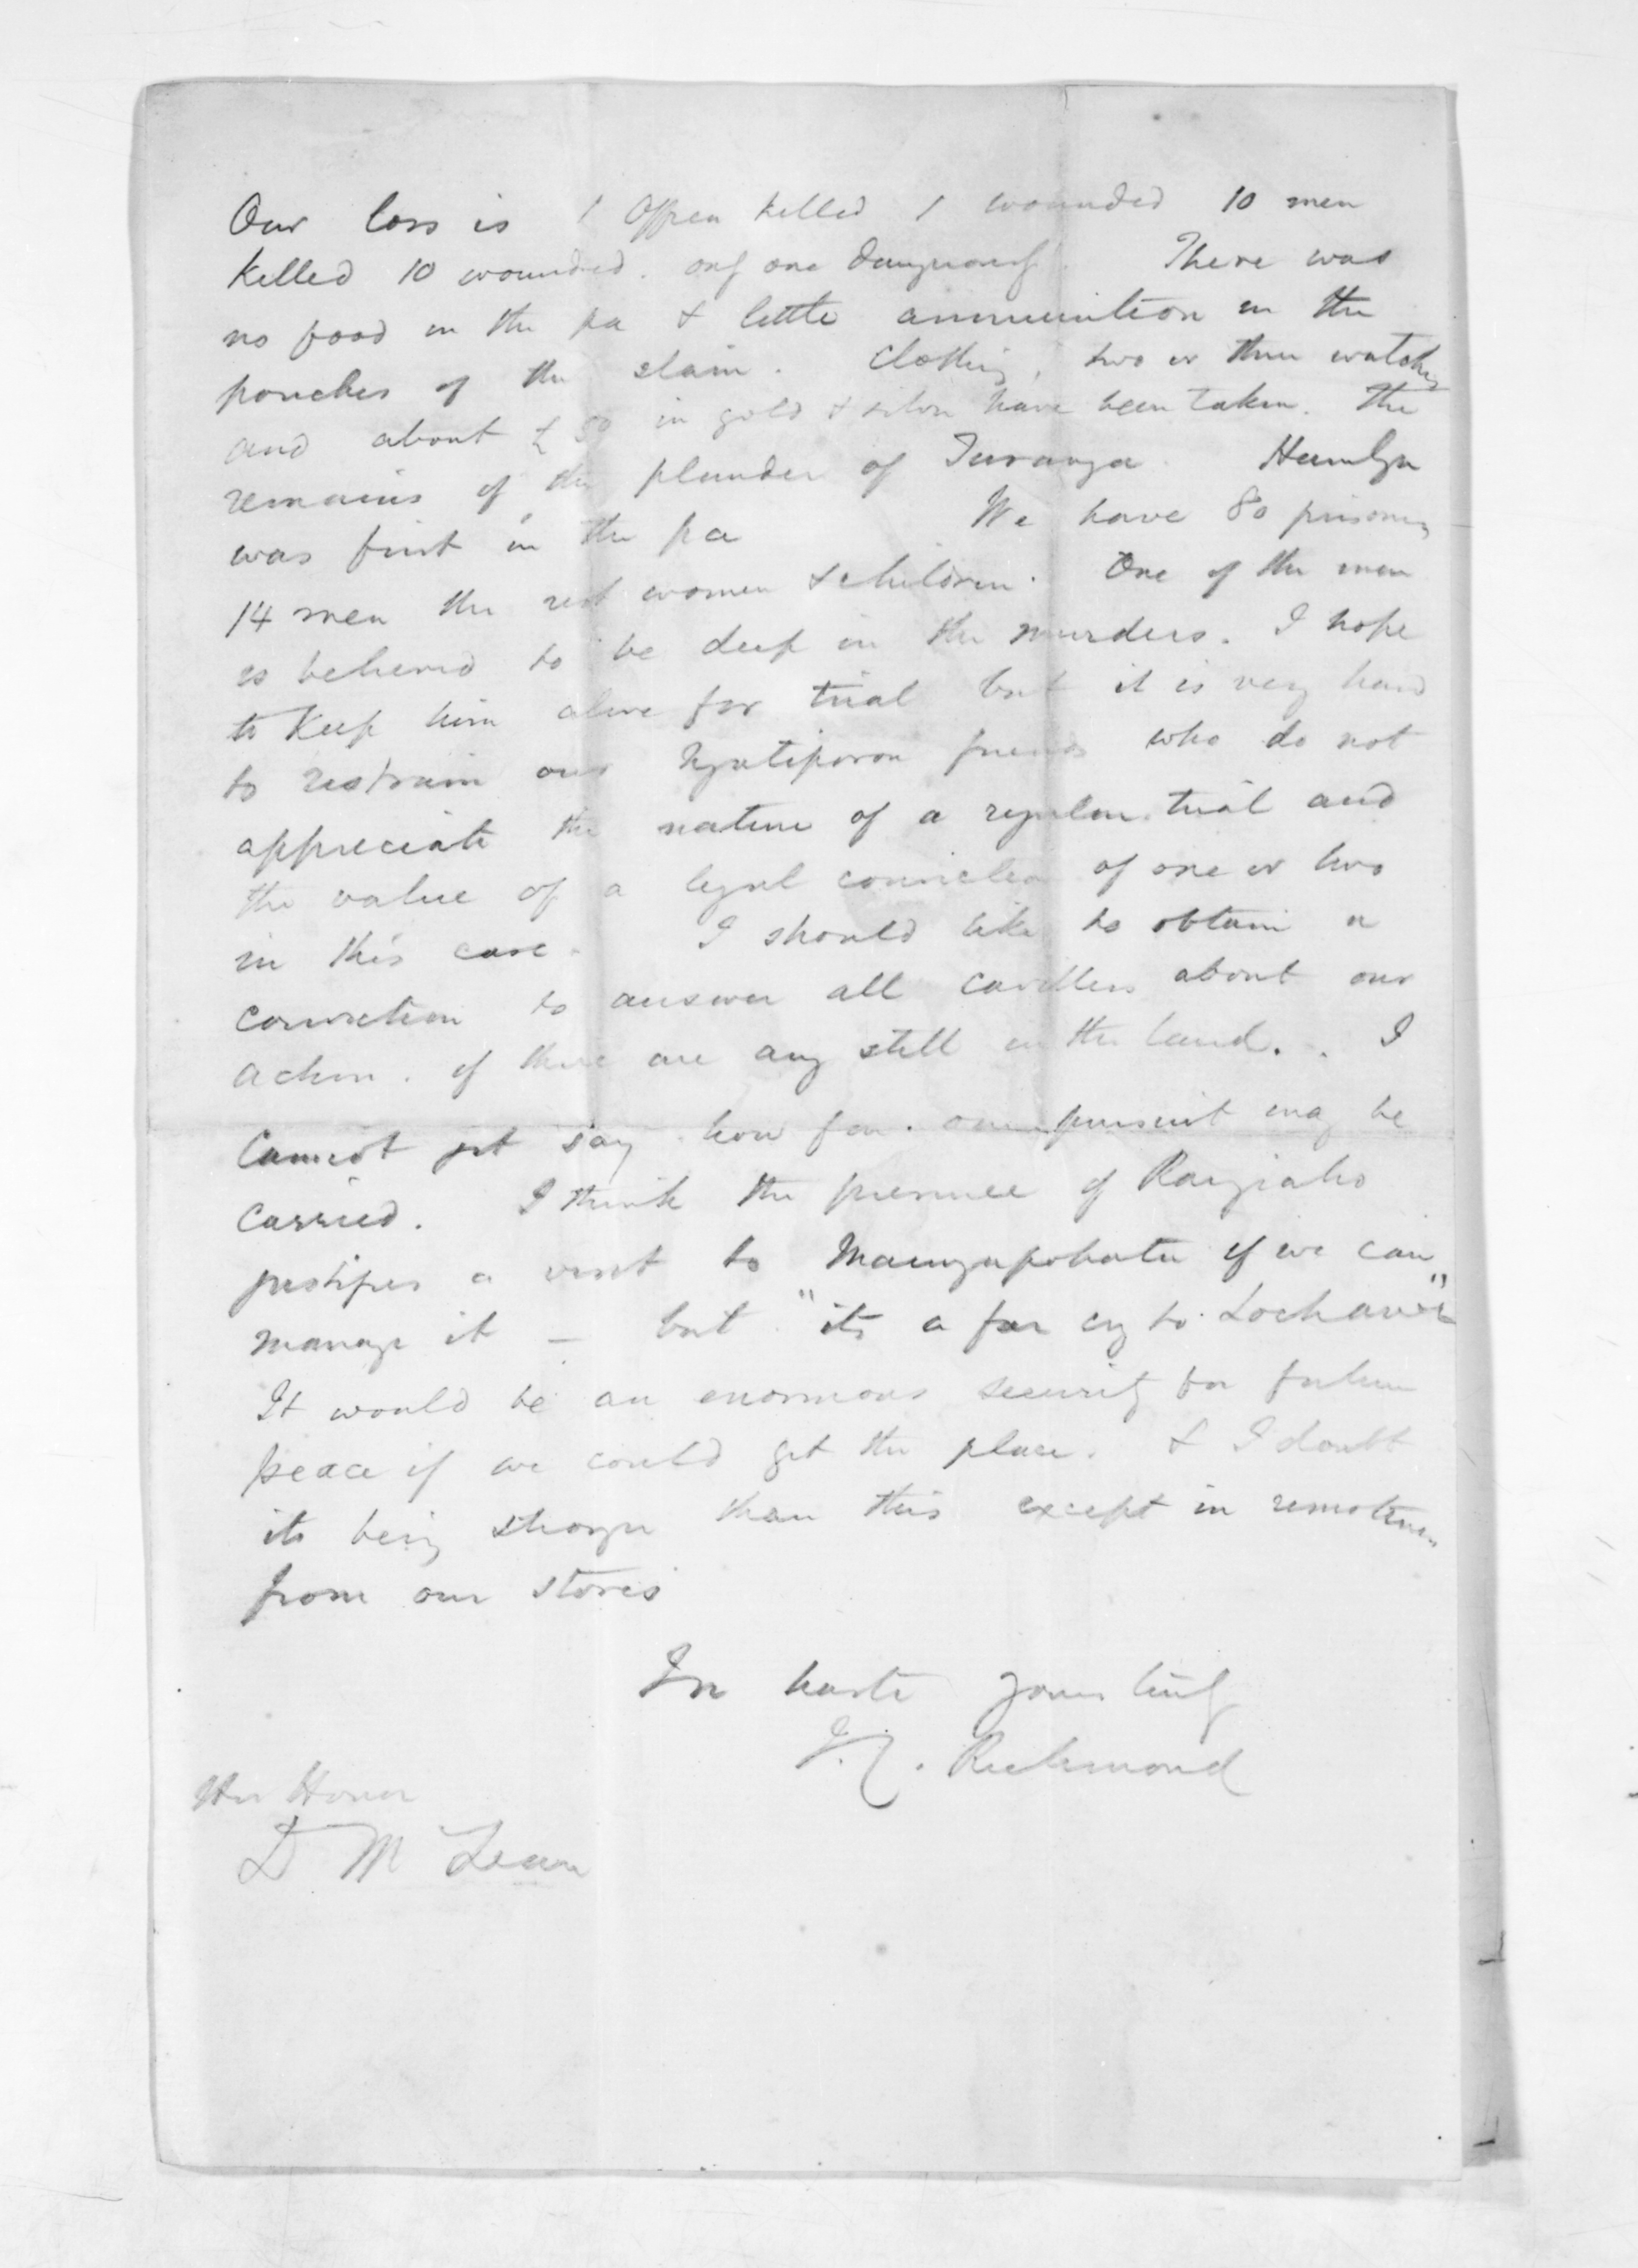 Our loss is 1 Officer killed 1 wounded 10 men
killed 10 wounded. only one dangerously. There was
no food in the pa & little ammunition in the
pouches of the slain. Clothing, two or three watches
and about £50 in gold & silver have been taken. The
remains of the plunder of Turanga. Hamlyn
was first in the pa We have 80 prisoners
14 men the rest women & children. One of the men
is believed to be deep in the murders. I hope
to keep him alive for trial but it is very hard
to restrain our Ngatiporou friends who do not
appreciate the nature of a regular trial and
the value of a legal conviction of one or two
in this case. I should like to obtain a
conviction to answer all cavillers about our
action. if there are any still in the land. . I
cannot yet say how far our pursuit may be
carried. I think the presence of Rangiaho
justifies a visit to Maungapohatu if we can
manage it - but "its a far cry to Lochawe"
It would be an enormous security for future
peace if we could get the place. & I doubt
its being stronger than this except in remoteness
from our stores
In haste yours truly
J.C. Richmond
His Honor
D McLean